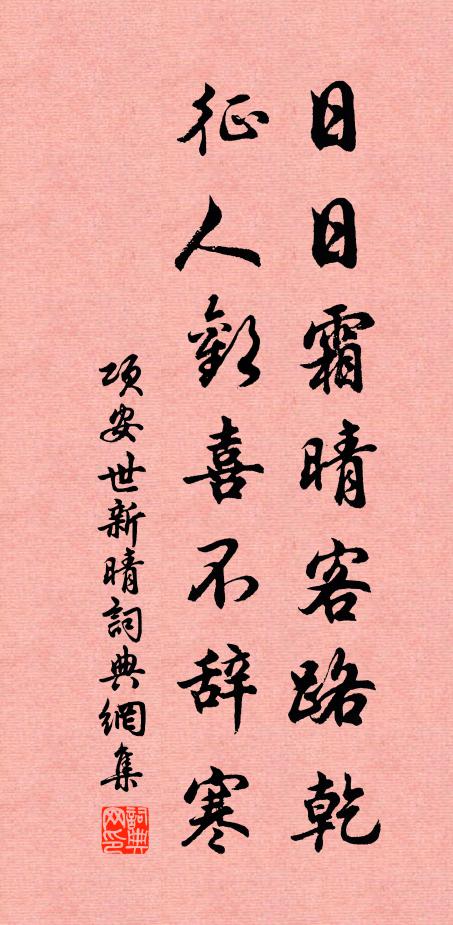 日日霜晴客路乾
征人歡喜不辞寒
项安世新晴詞典網集
詞典网印